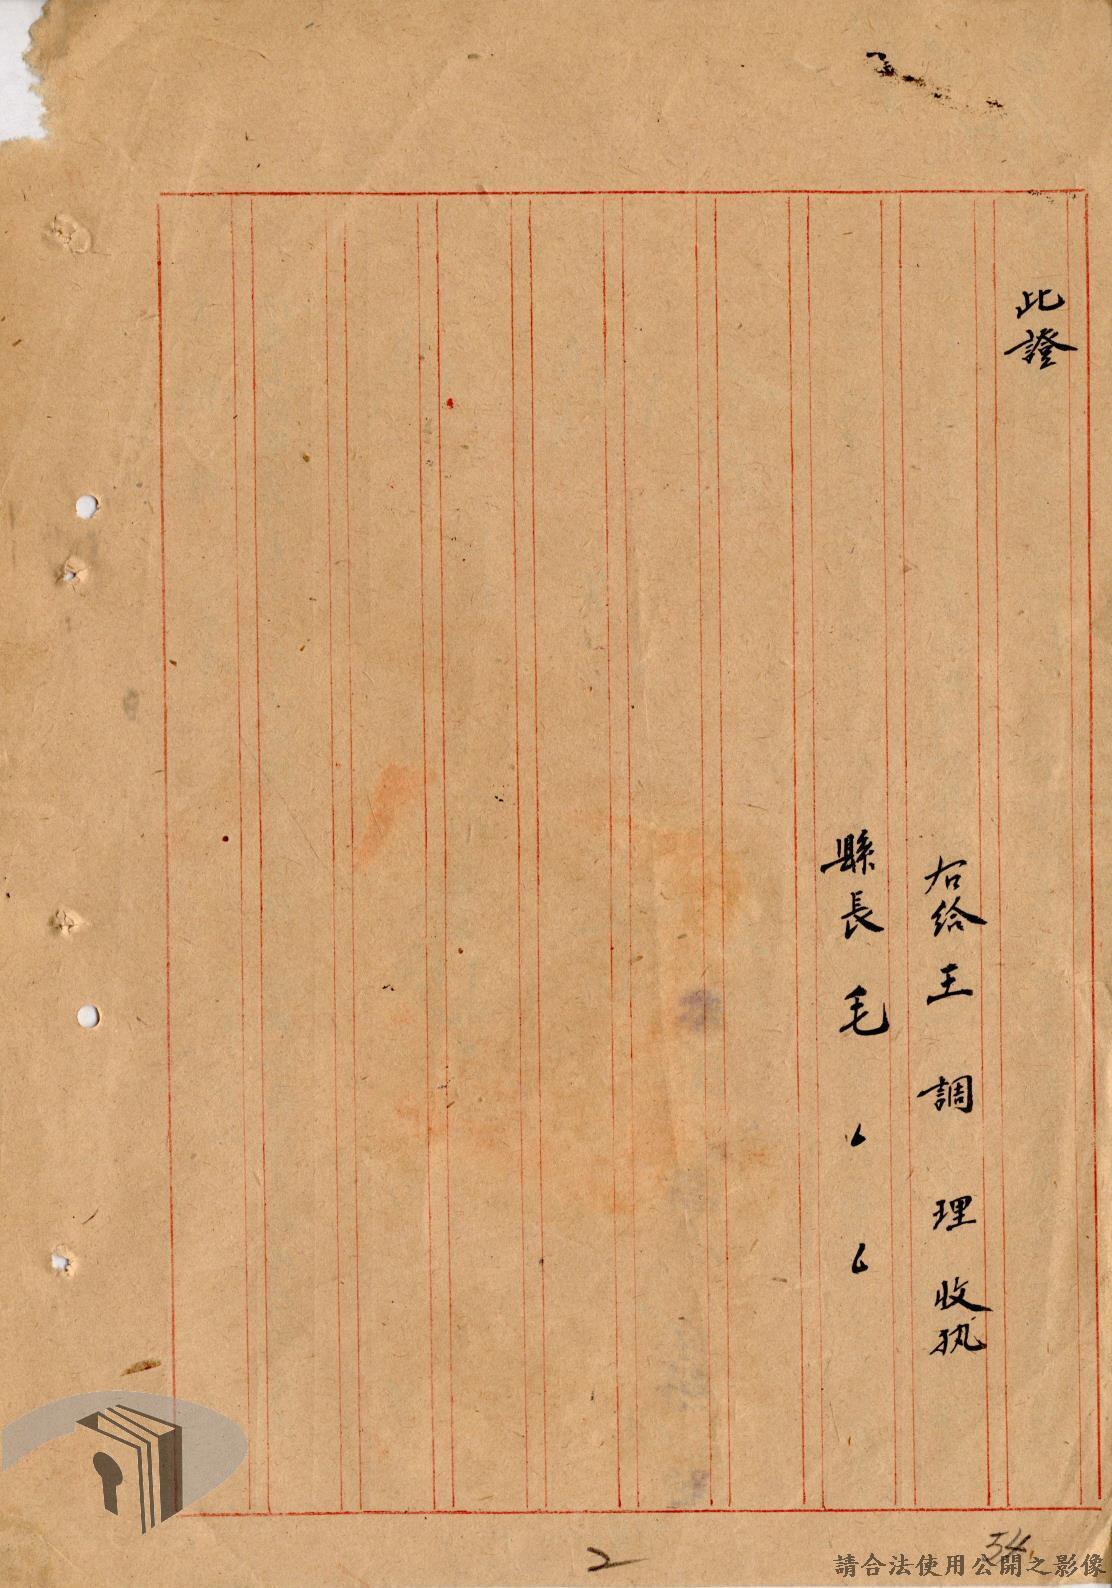 此證
右給王調理收执
縣長毛
2
34
請合法使用公開之影像